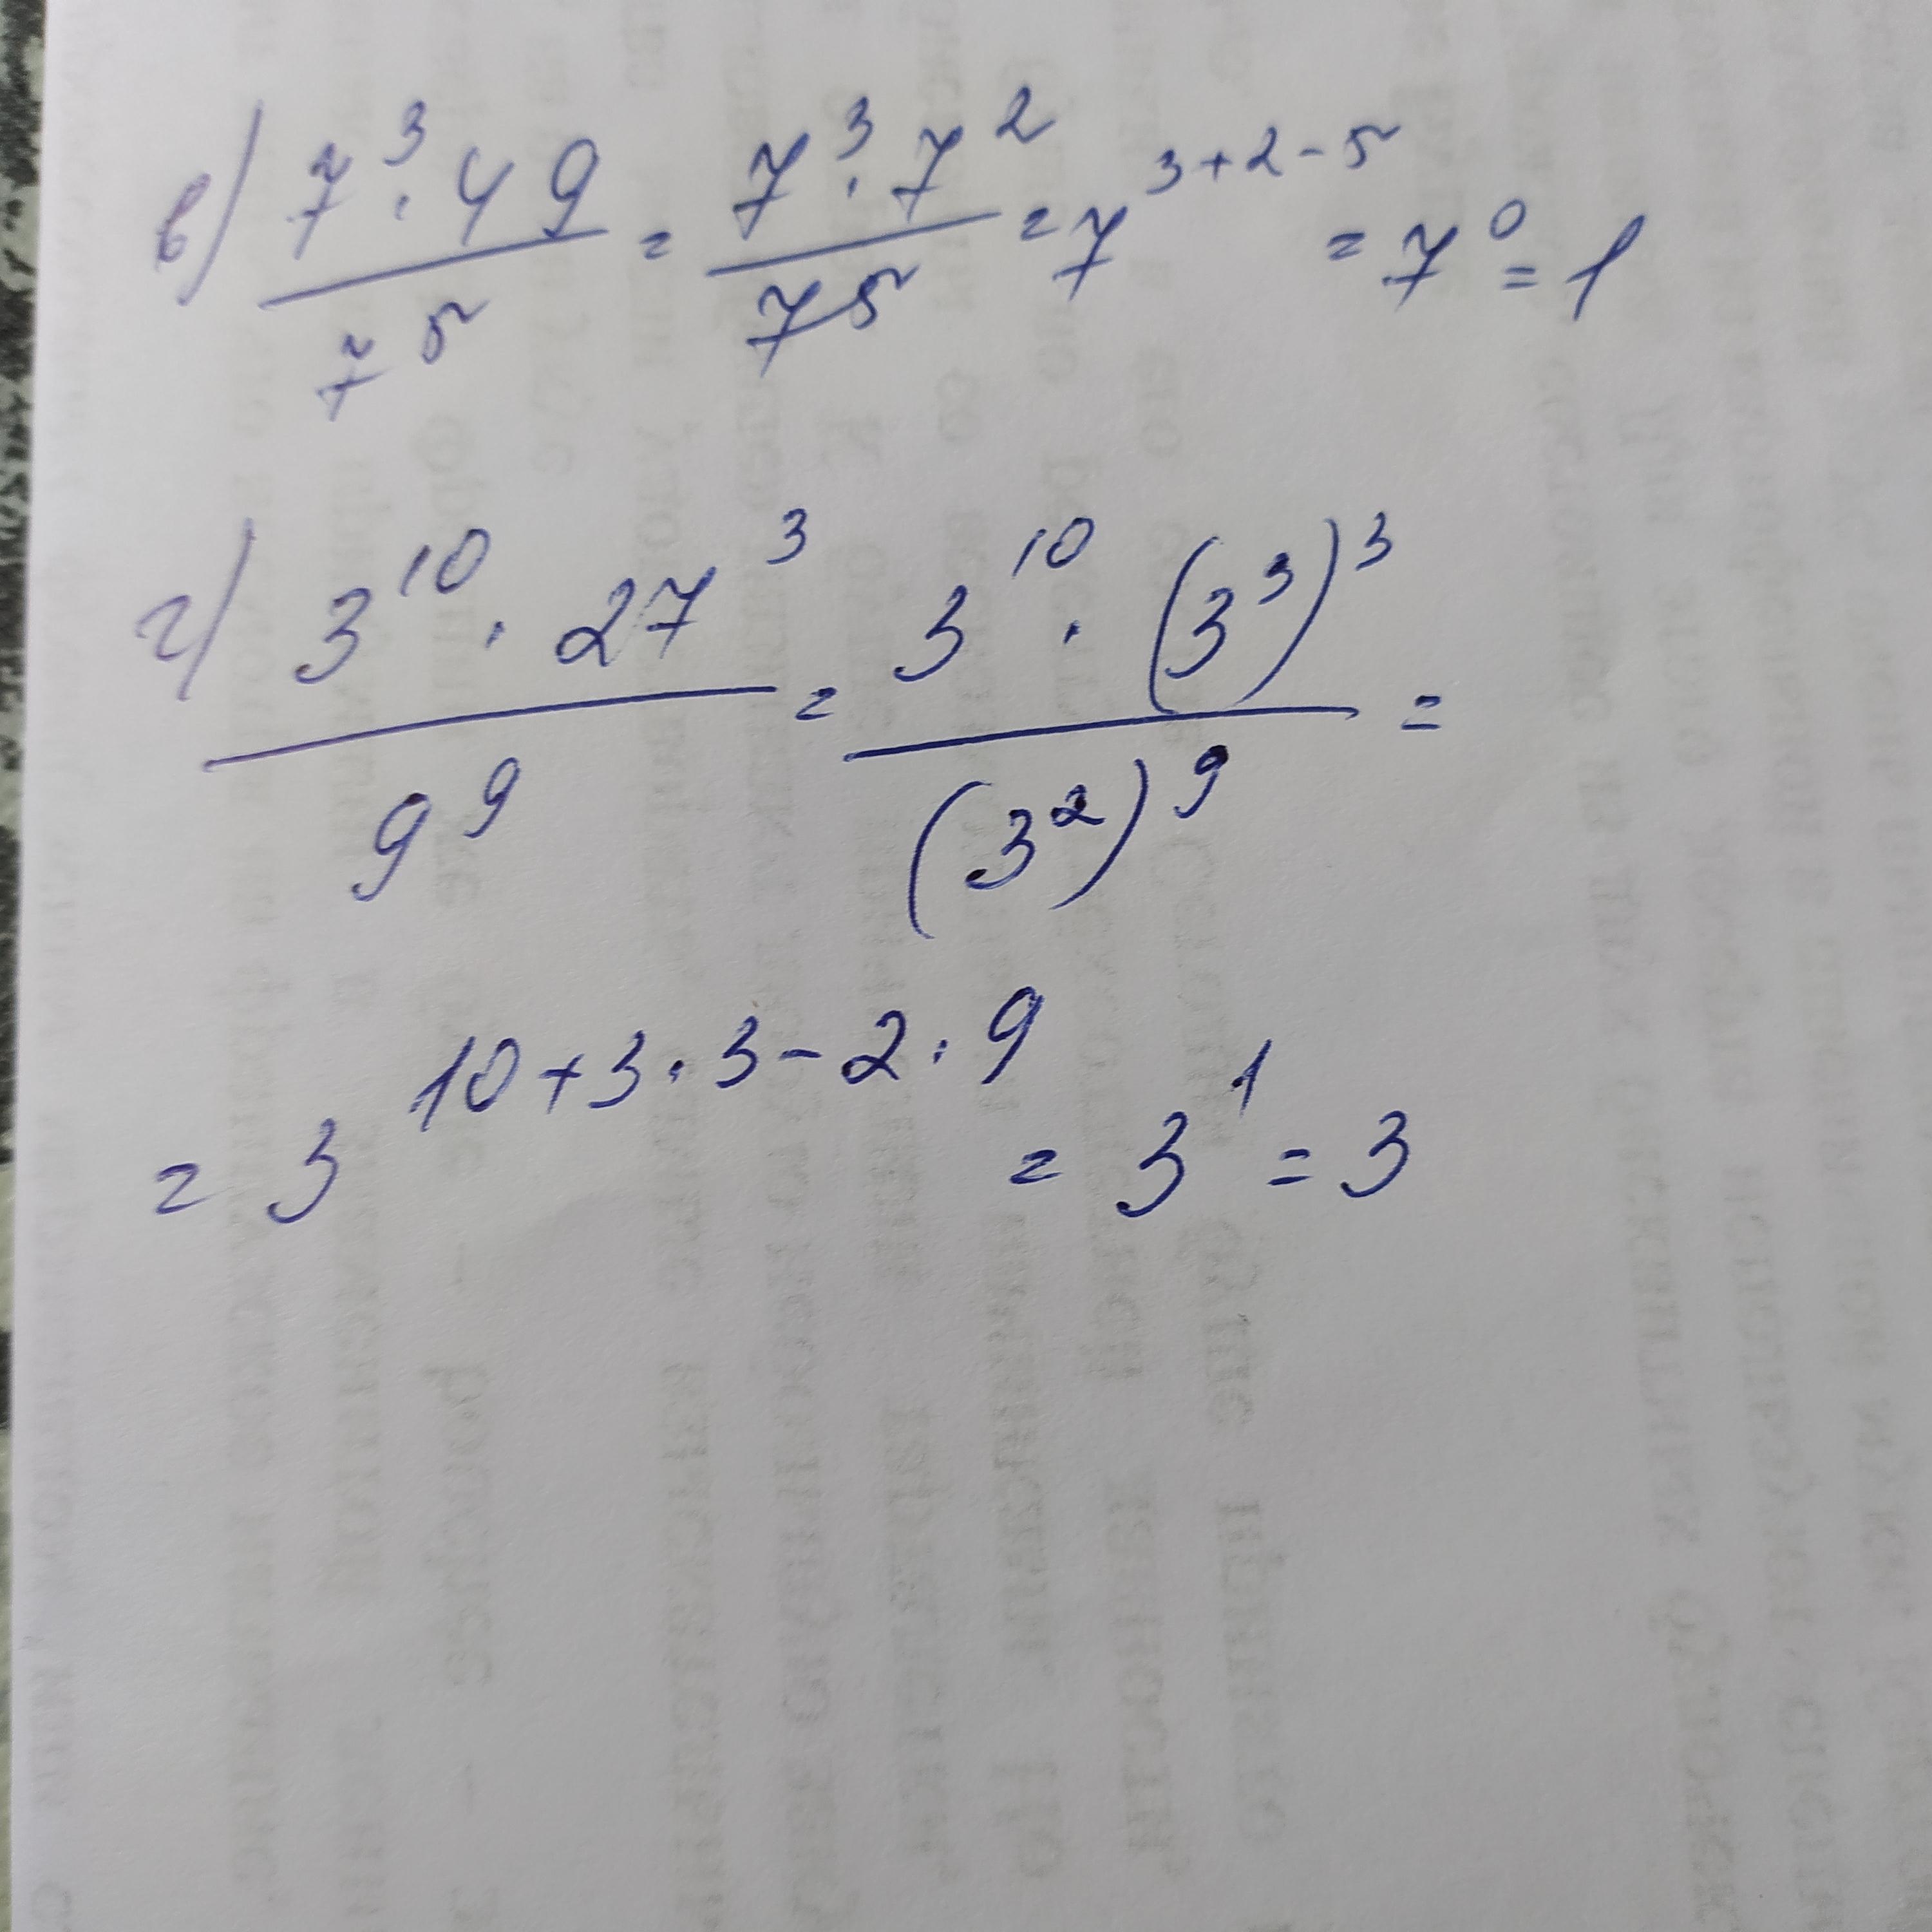 в) 7³ · 49 / 7⁵ = 7³ · 7² / 7⁵ = 7³⁺²⁻⁵ = 7⁰ = 1
г) 3¹⁰ · 27³ / 9⁹ = 3¹⁰ · (3³)³ / (3²)⁹ =
= 3^(10+3·3-2·9) = 3¹ = 3